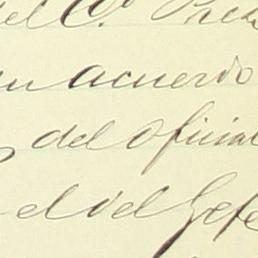 del C.º
su acuerdo
del oficial
el del Gefe